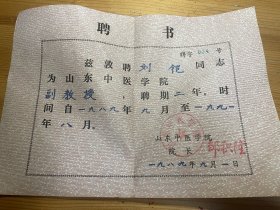 聘书
聘字 号
兹敦聘刘 同志
为山东中医学院
副教授，聘期二年，时
间自一九八九年九月至一九九一
年八月。
山东中医学院
院长
一九八九年九月一日